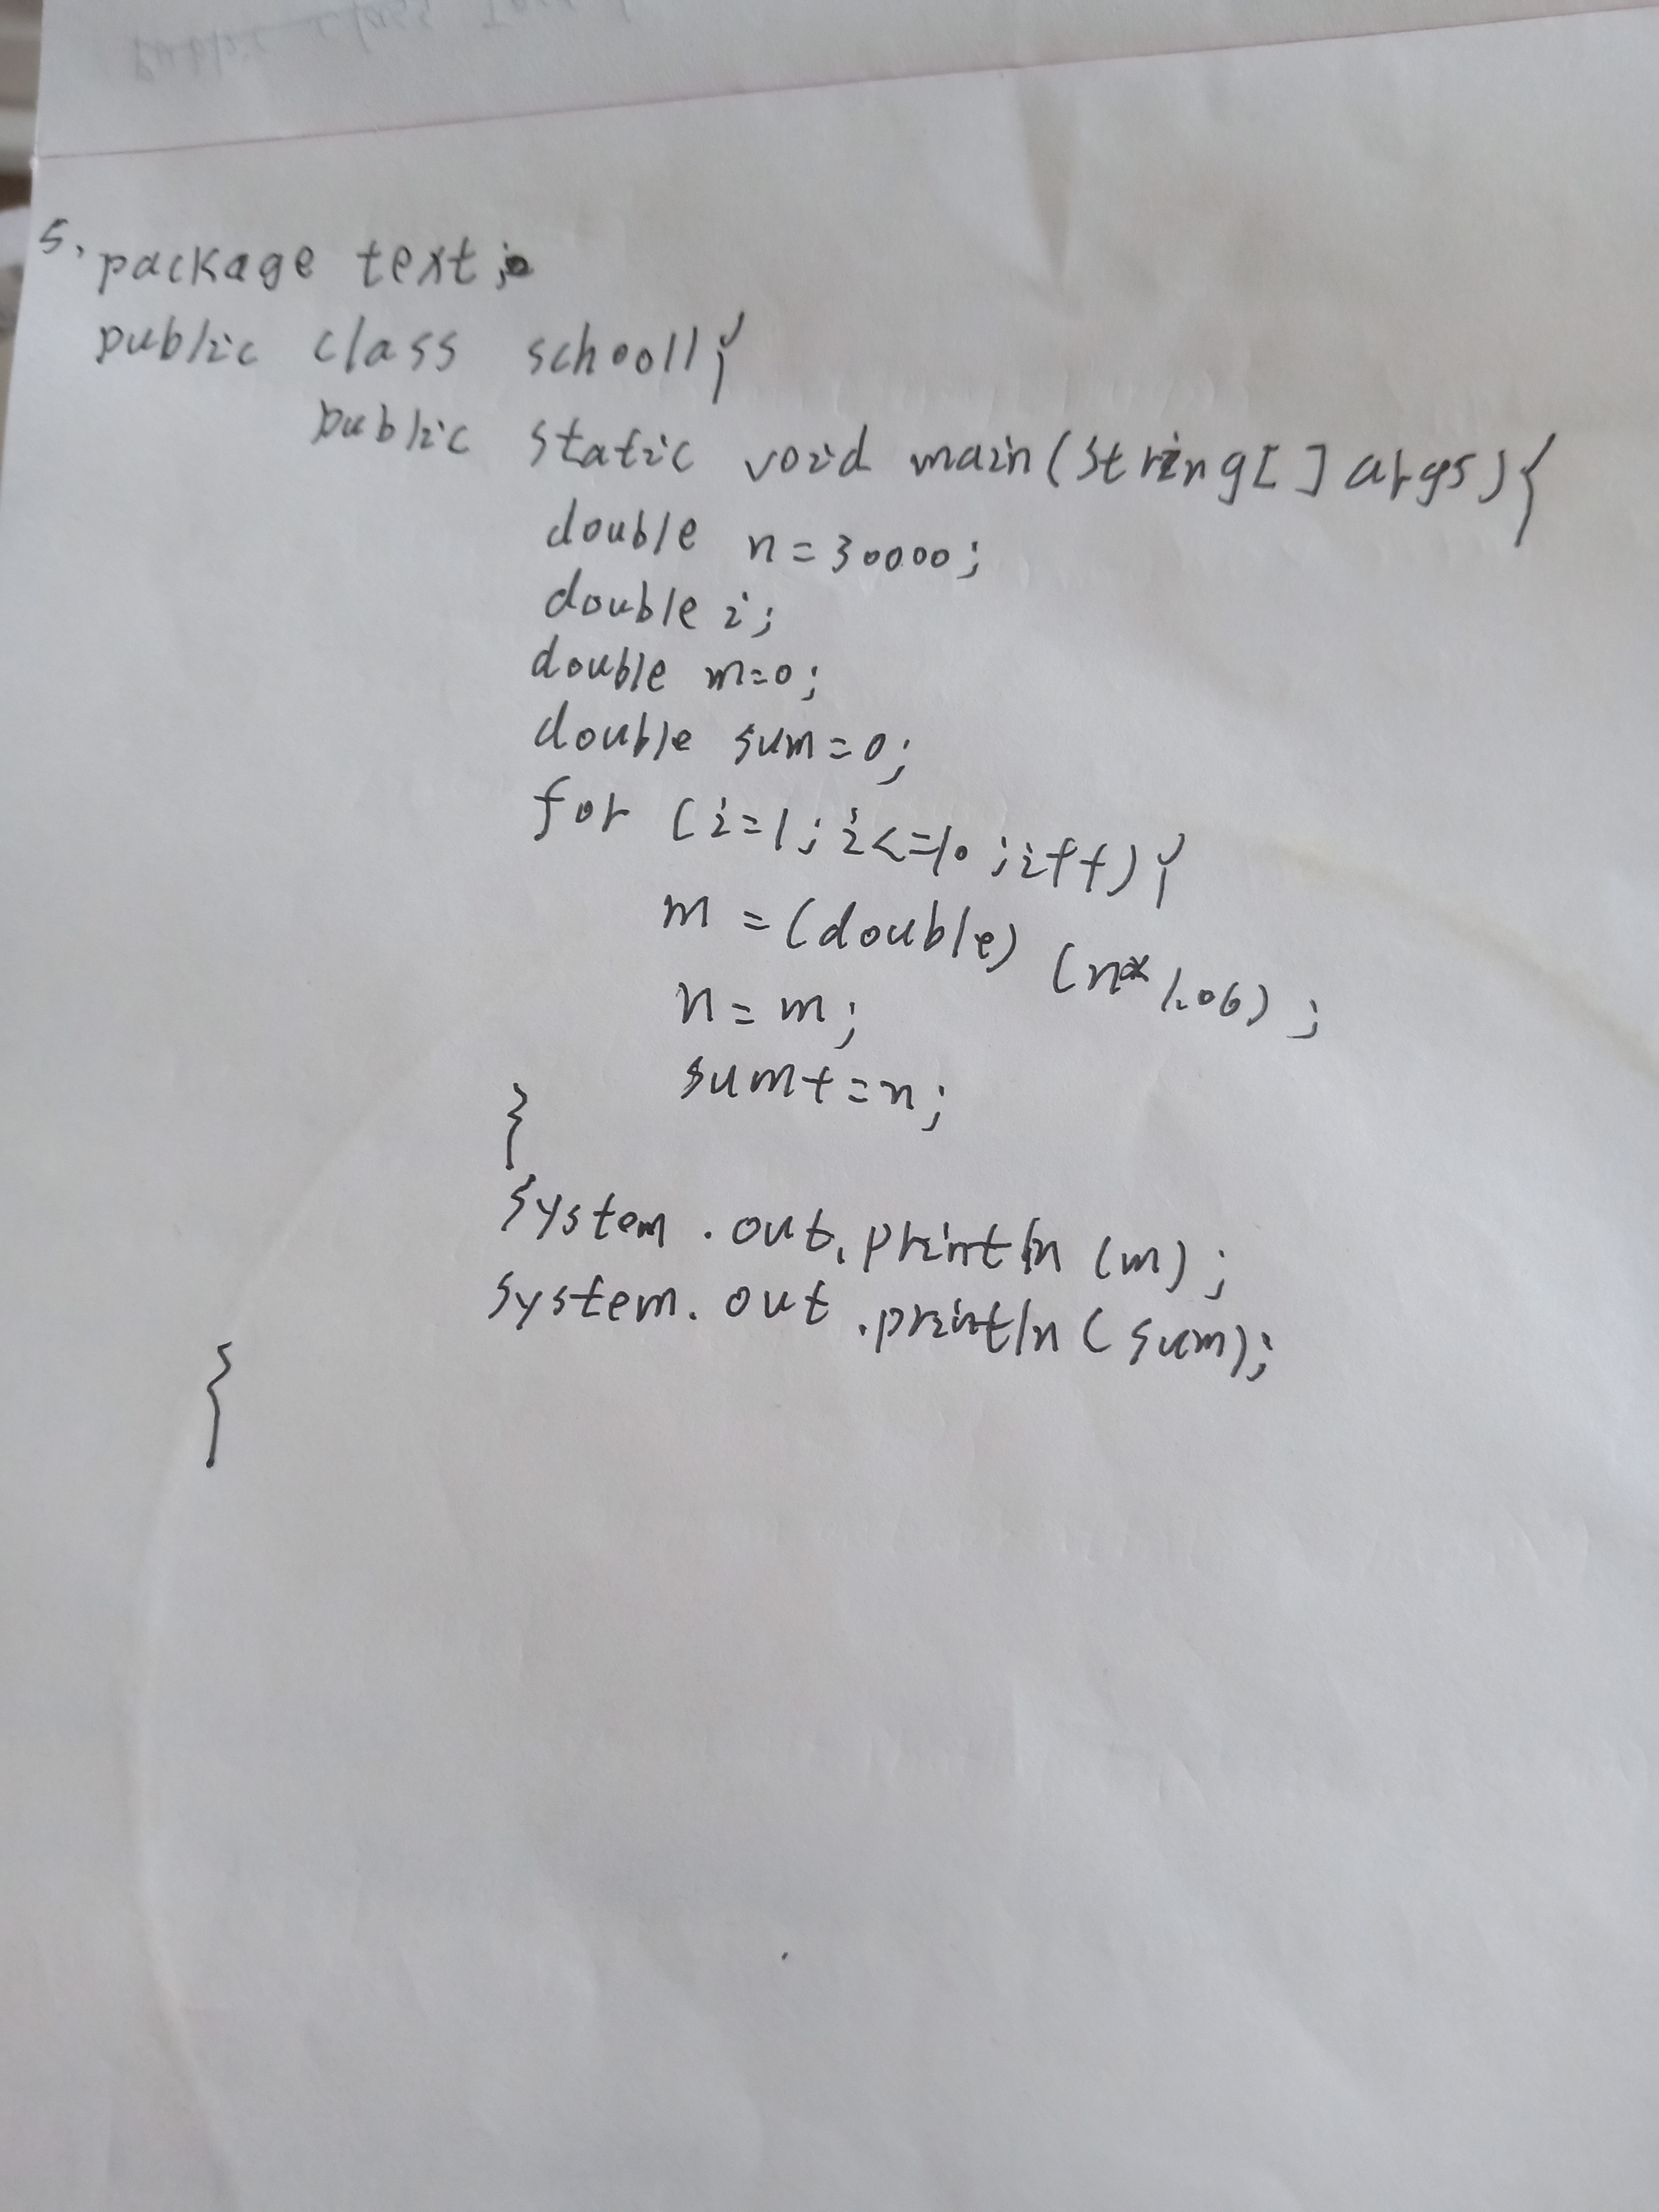 public class
5. package text;
public class school1{
public static void main(String[] args){
double n=30000;
double i;
double m=0;
double sum=0;
for (i=1;i<=10;i++){
m=(double)(n*1.06);
n=m;
sum+=n;
}
system.out.println(m);
system.out.println(sum);
{